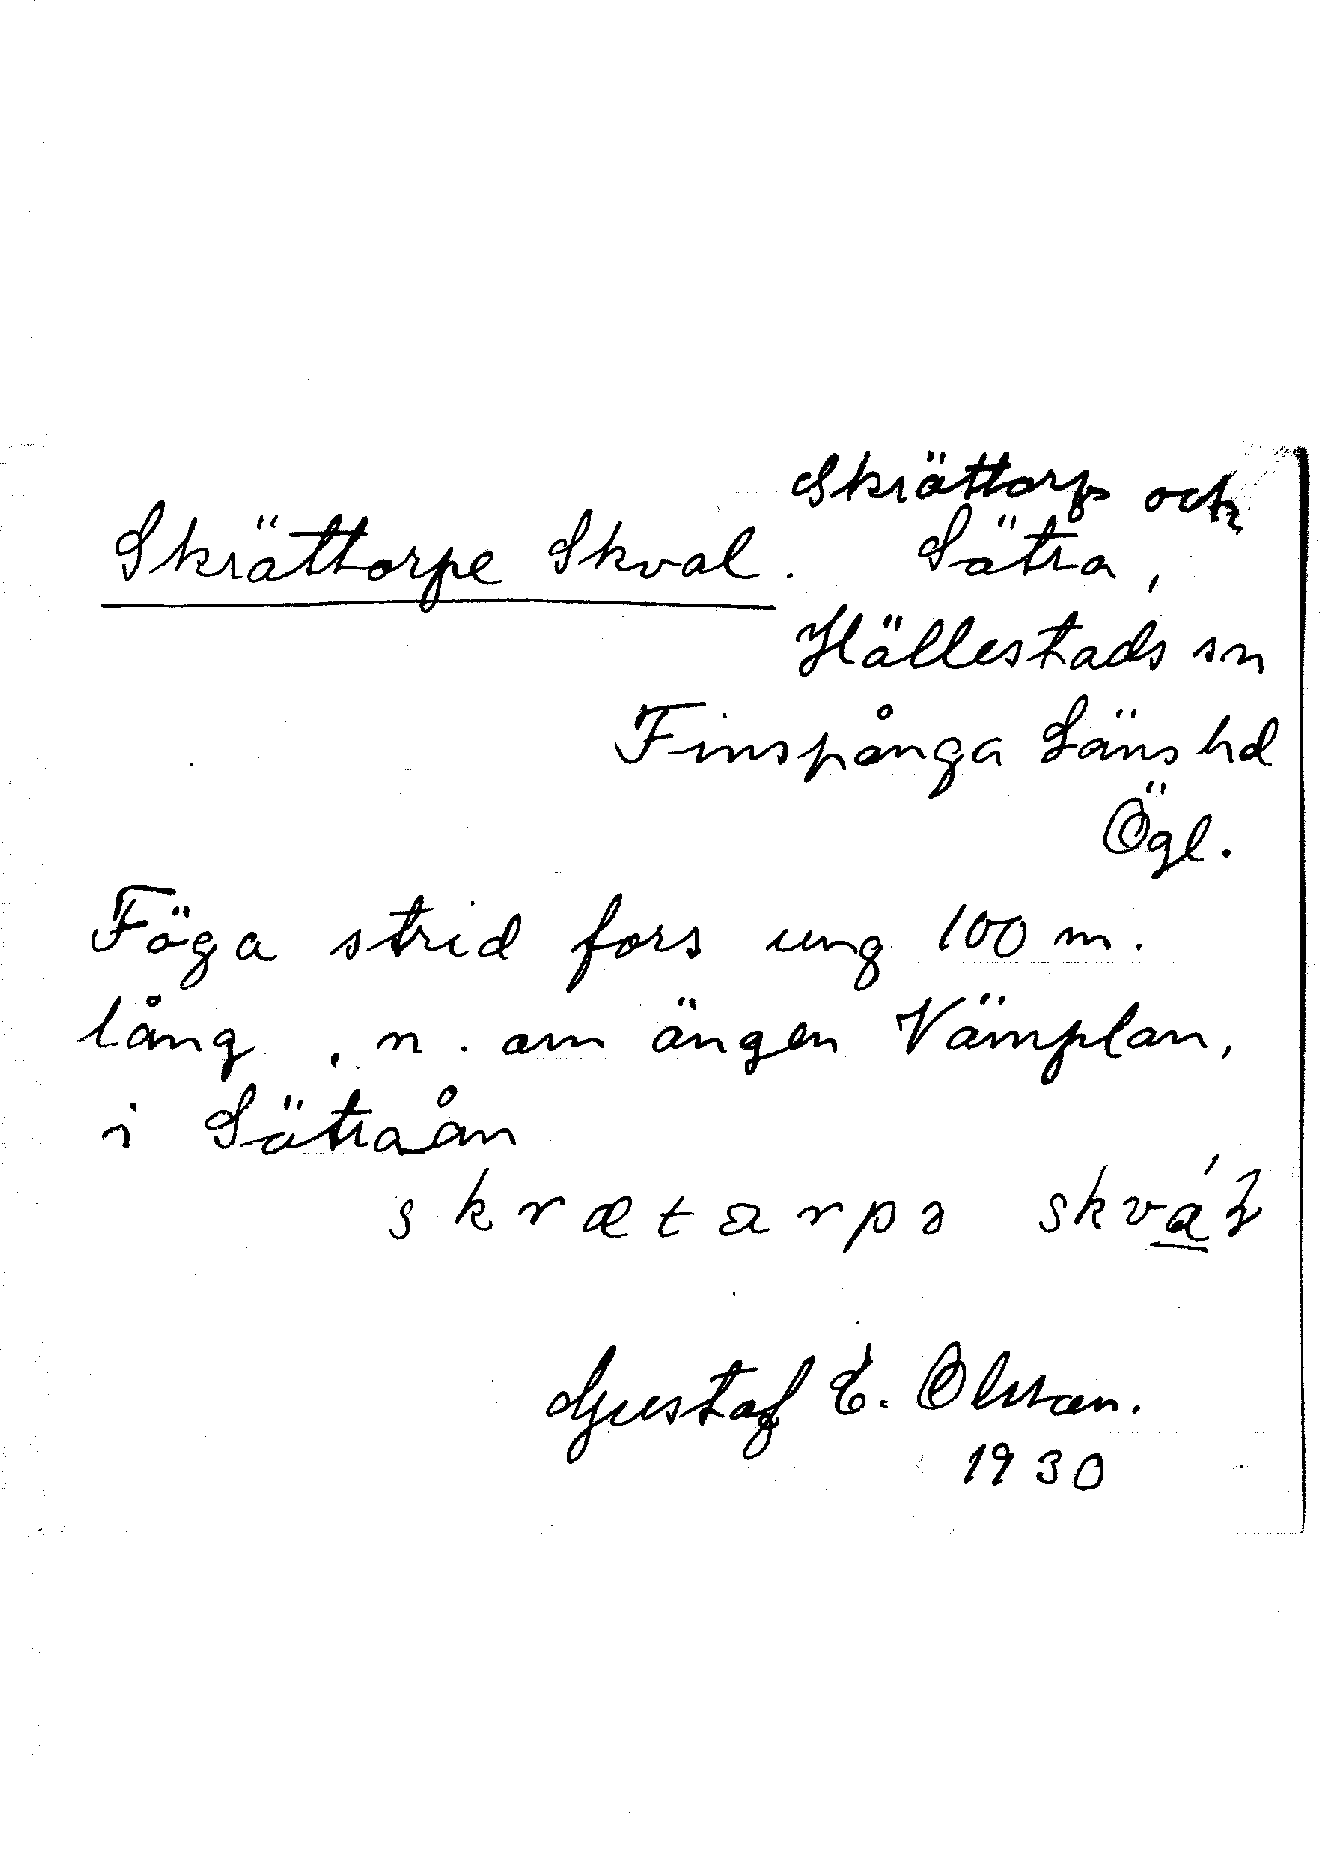 Skrättorp och
Skrättorpe Skval. Sätra,
Hällestads sn
Finspånga Läns hd
Ögl.
Föga strid fors ung 100 m.
lång, n. om ängen Vämplan,
i Sätraån
skrætarpə skvál
Gustaf E. Olsson.
1930